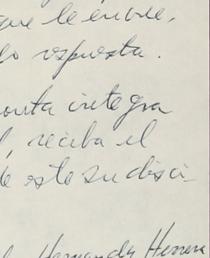 que le envie,
respuesta.
integra
reciba el
de este su disci-
Hernandez Herrera